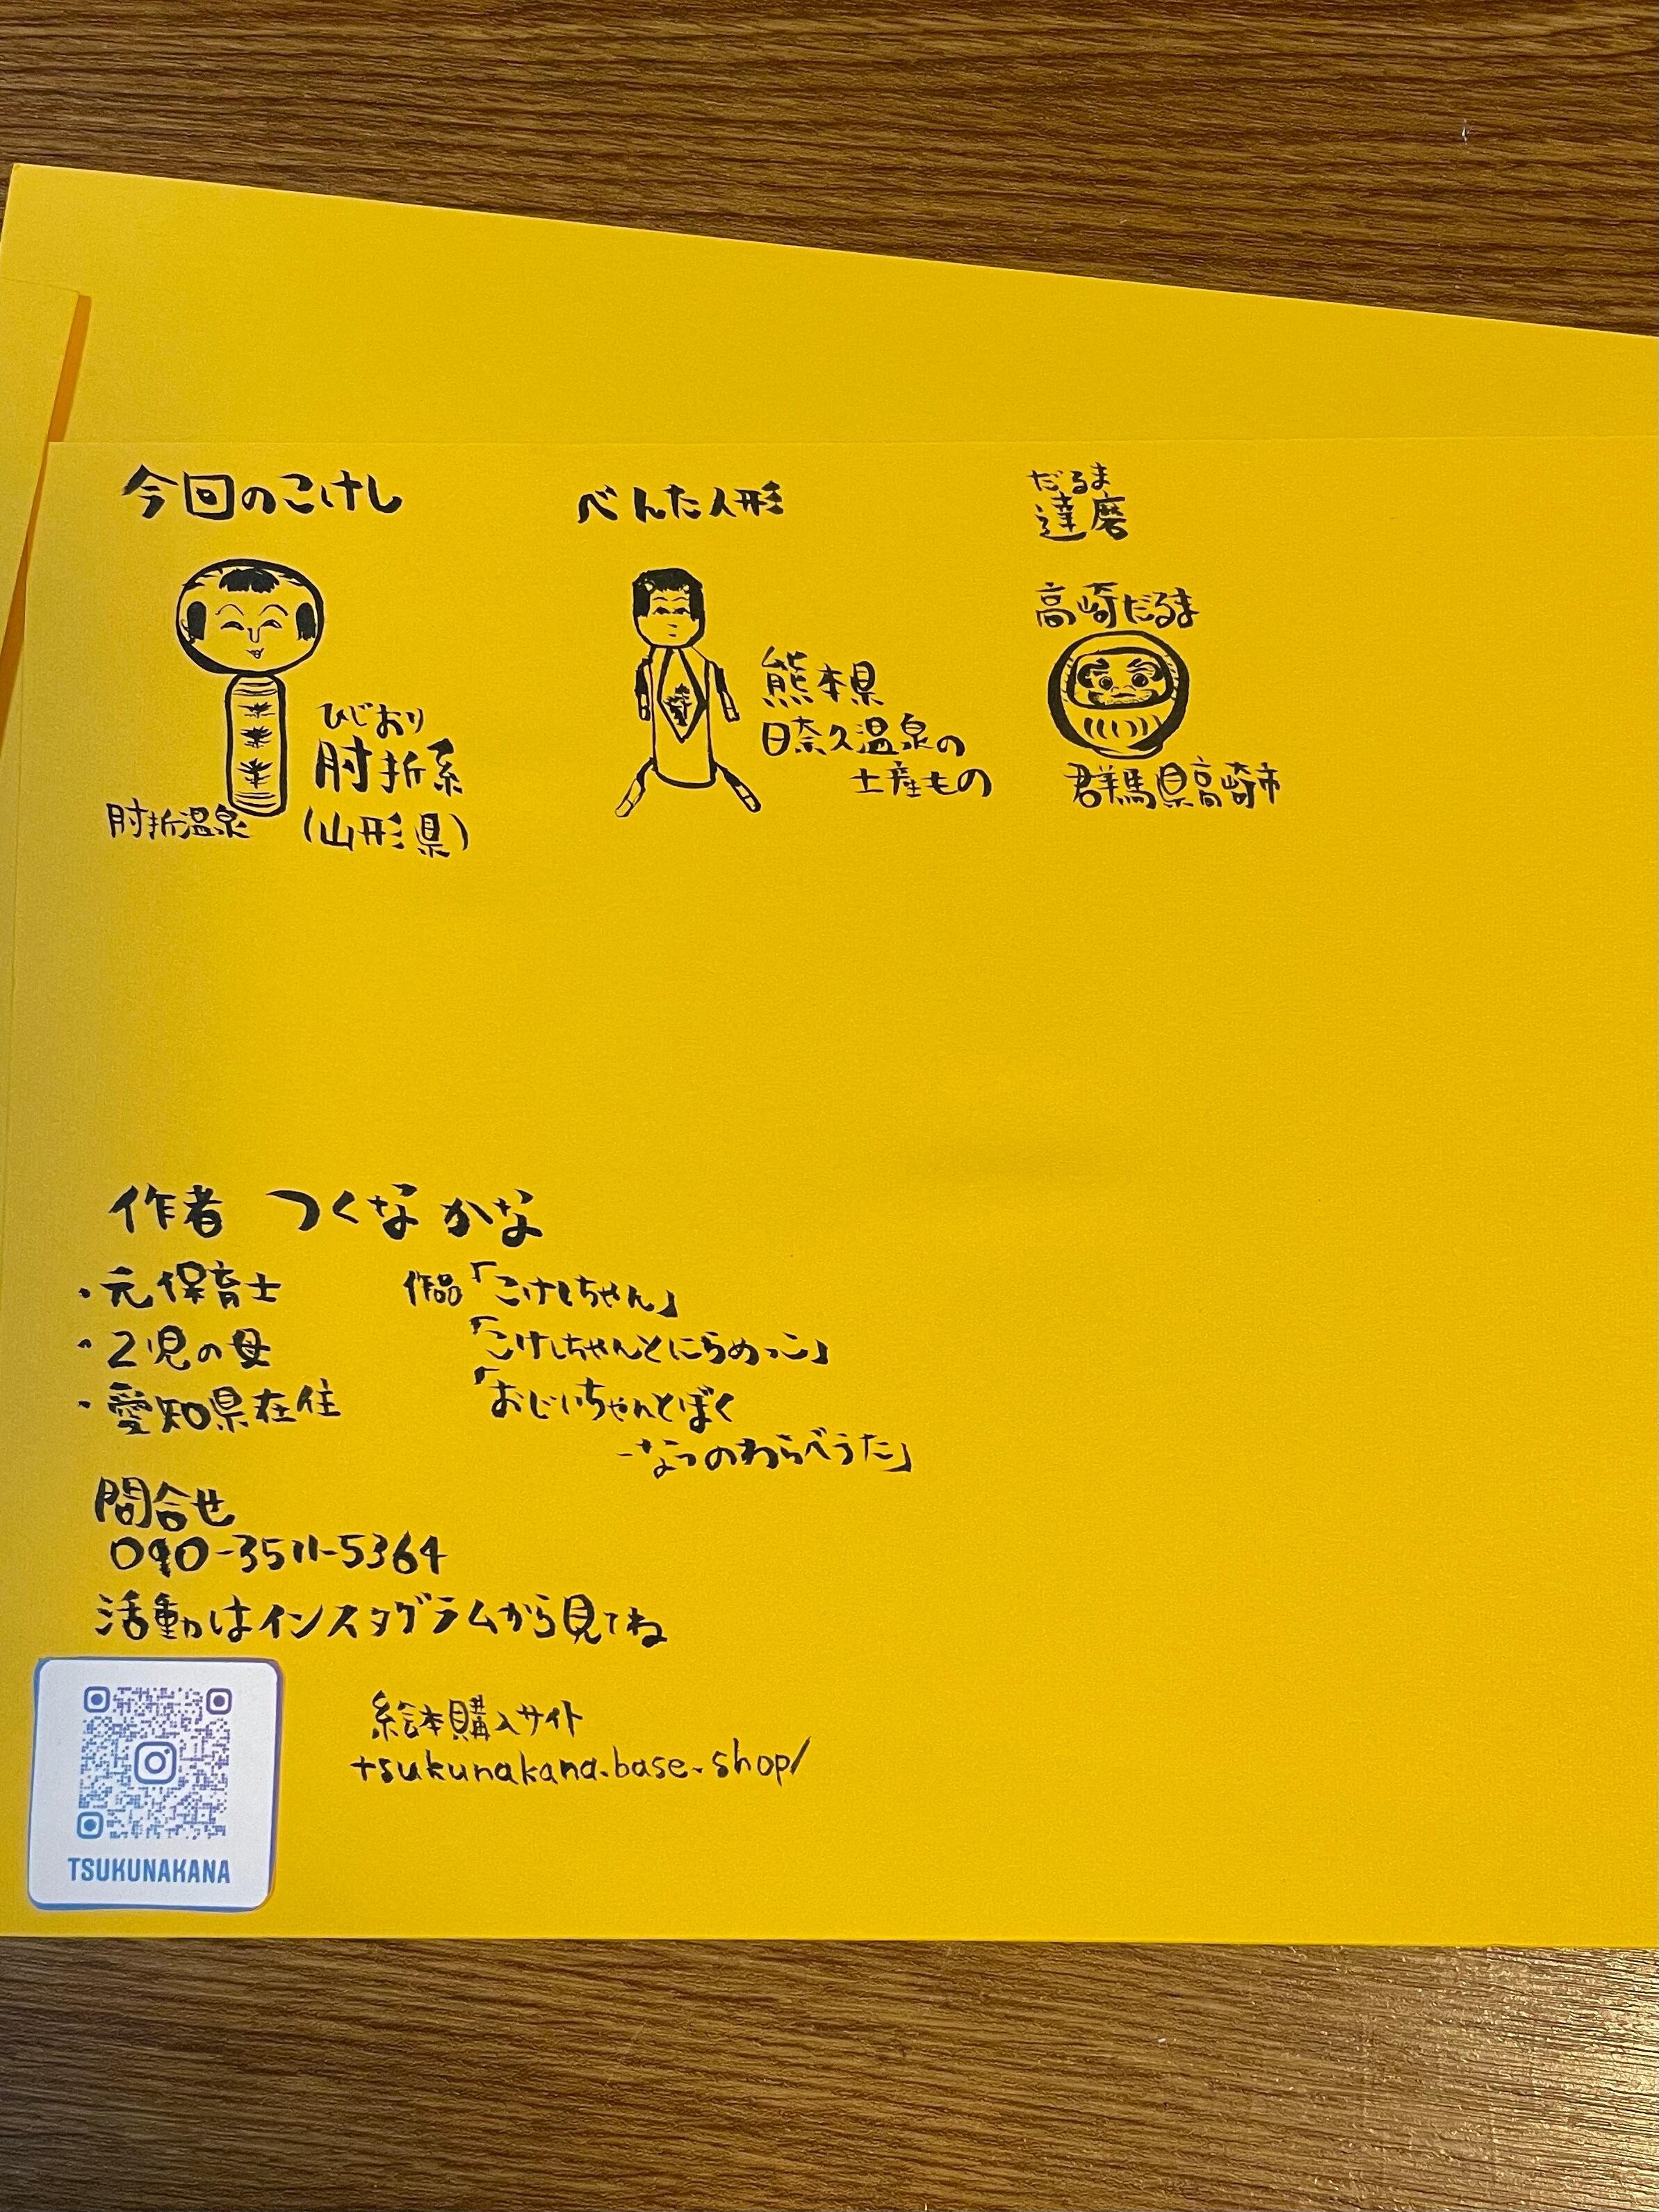 今回のこけし
ひじおり
肘折系
(山形県)
肘折温泉
べんた人形
熊本県
日奈久温泉の
土産もの
だるま
達磨
高崎だるま
群馬県高崎市
作者 つくな かな
・元保育士
・2児の母
・愛知県在住
作品「こけしちゃん」
「こけしちゃんとにらめっこ」
「おじいちゃんとぼく
-なつのわらべうた」
問合せ
090-3511-5364
活動はインスタグラムから見てね
TSUKUNAKANA
絵本購入サイト
tsukunakana.base.shop/